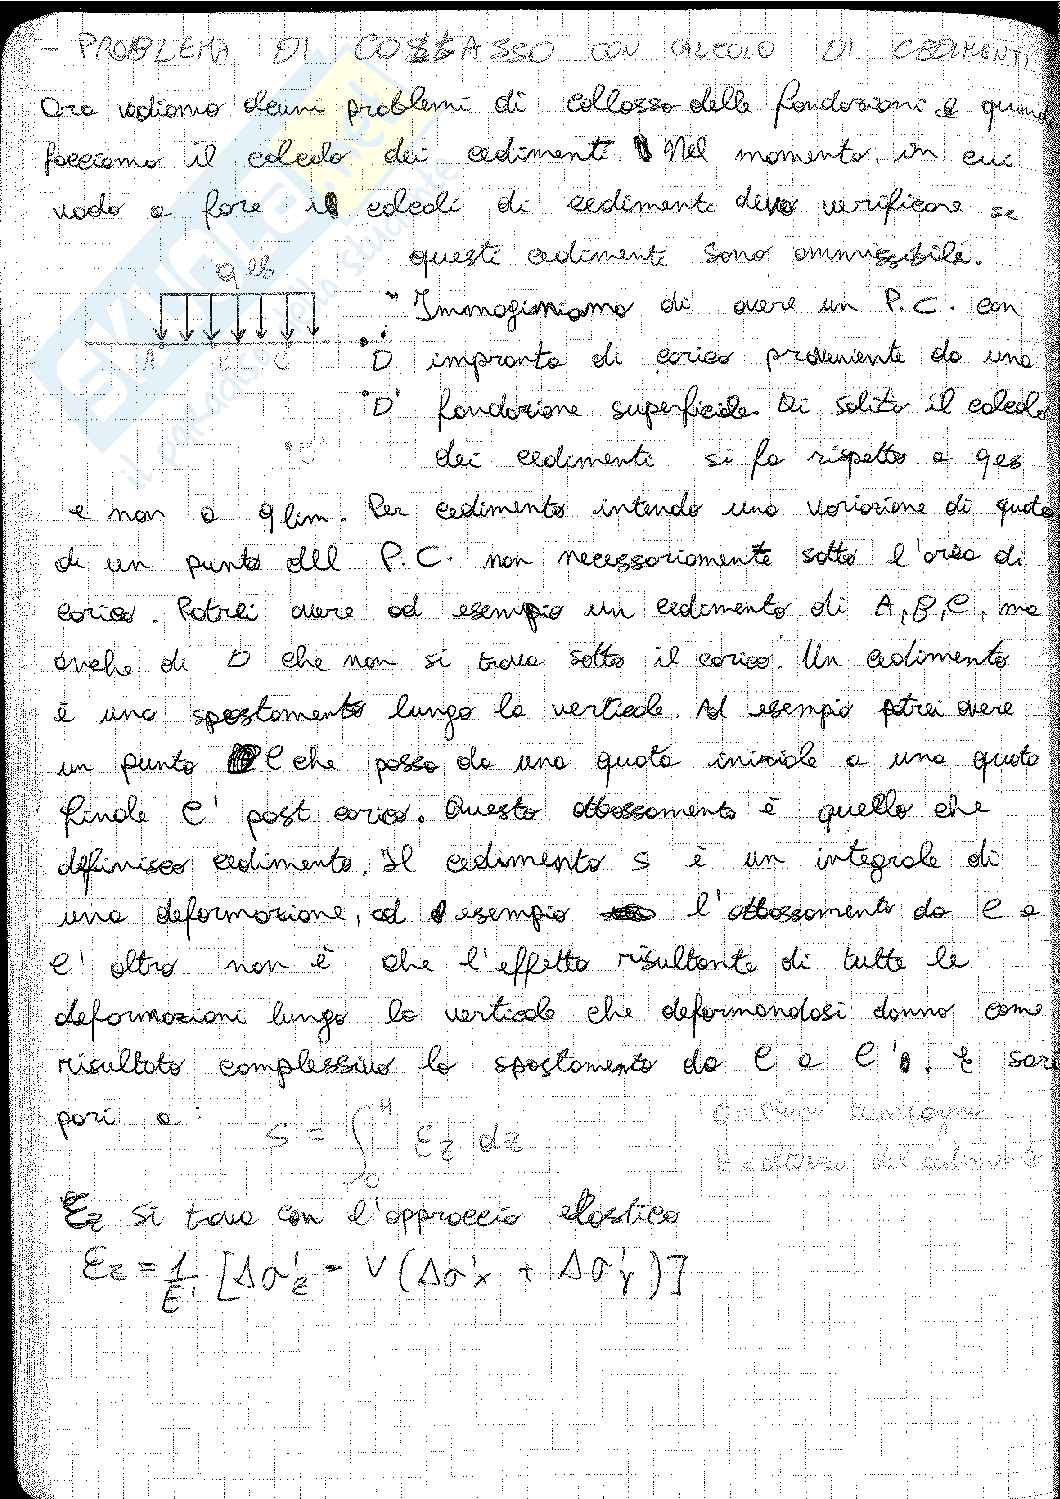 - PROBLEMA DI COLLASSO CON CALCOLO DI CEDIMENTI
Ora vediamo alcuni problemi di collasso delle fondazioni e quand
facciamo il calcolo dei cedimenti. Nel momento in cui
vado a fare i calcoli di cedimenti devo verificare se
questi cedimenti sono ammissibili.
q es
Immaginiamo di avere un P.C. con
A B C D impronta di carico proveniente da una
D' fondazione superficiale. Di solito il calcolo
C'
dei cedimenti si fa rispetto a q es
e non a q lim. Per cedimento intendo una variazione di quota
di un punto dll P.C. non necessariamente sotto l'area di
carico. Potrei avere ad esempio un cedimento di A, B, C, ma
anche di D che non si trova sotto il carico. Un cedimento
è uno spostamento lungo la verticale. Ad esempio potrei avere
un punto C che passa da una quota iniziale a una quota
finale C' post carico. Questo abbassamento è quello che
definisco cedimento. Il cedimento s è un integrale di
una deformazione, ad esempio l'abbassamento da C a
C' altro non è che l'effetto risultante di tutte le
deformazioni lungo la verticale che deformandosi danno come
risultato complessivo lo spostamento da C a C'. E sarà
pari a:
s = ∫₀ᴴ εz dz
εz si trova con l'approccio elastico
εz = 1/E' [Δσ'z - ν (Δσ'x + Δσ'y)]